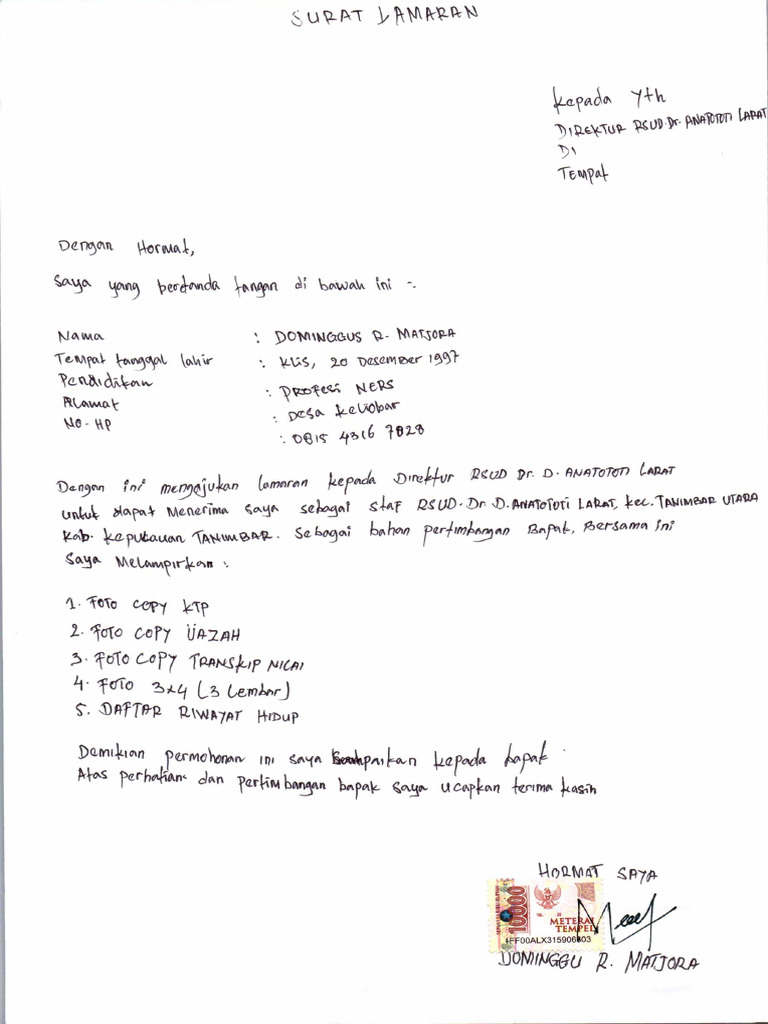 SURAT LAMARAN
Kepada Yth
DIREKTUR RSUD.Dr. ANATOTOTI LARAT
DI
Tempat
Dengan Hormat,
Saya yang bertanda tangan di bawah ini :.
Nama : DOMINGGUS R. MATJORA
Tempat tanggal lahir : Klis, 20 Desember 1997
Pendidikan : PROFESI NERS
Alamat : Desa Keliobar
No-HP : 0815 4316 7828
Dengan ini mengajukan lamaran kepada Direktur RSUD Dr. D. ANATOTOTI LARAT
untuk dapat Menerima saya sebagai staf RSUD.Dr D. ANATOTOTI LARAT, Kec. TANIMBAR UTARA
Kab. Kepulauan TANIMBAR. Sebagai bahan pertimbangan Bapak, Bersama ini
Saya Melampirkan :
1. FOTO COPY KTP
2. FOTO COPY IJAZAH
3. FOTO COPY TRANSKIP NILAI
4. FOTO 3x4 (3 Lembar)
5. DAFTAR RIWAYAT HIDUP
Demikian permohonan ini saya kepada bapak.
Atas perhatian dan pertimbangan bapak saya ucapkan terima kasih
HORMAT SAYA
10000
METERAI
TEMPEL
DOMINGGU R. MATJORA